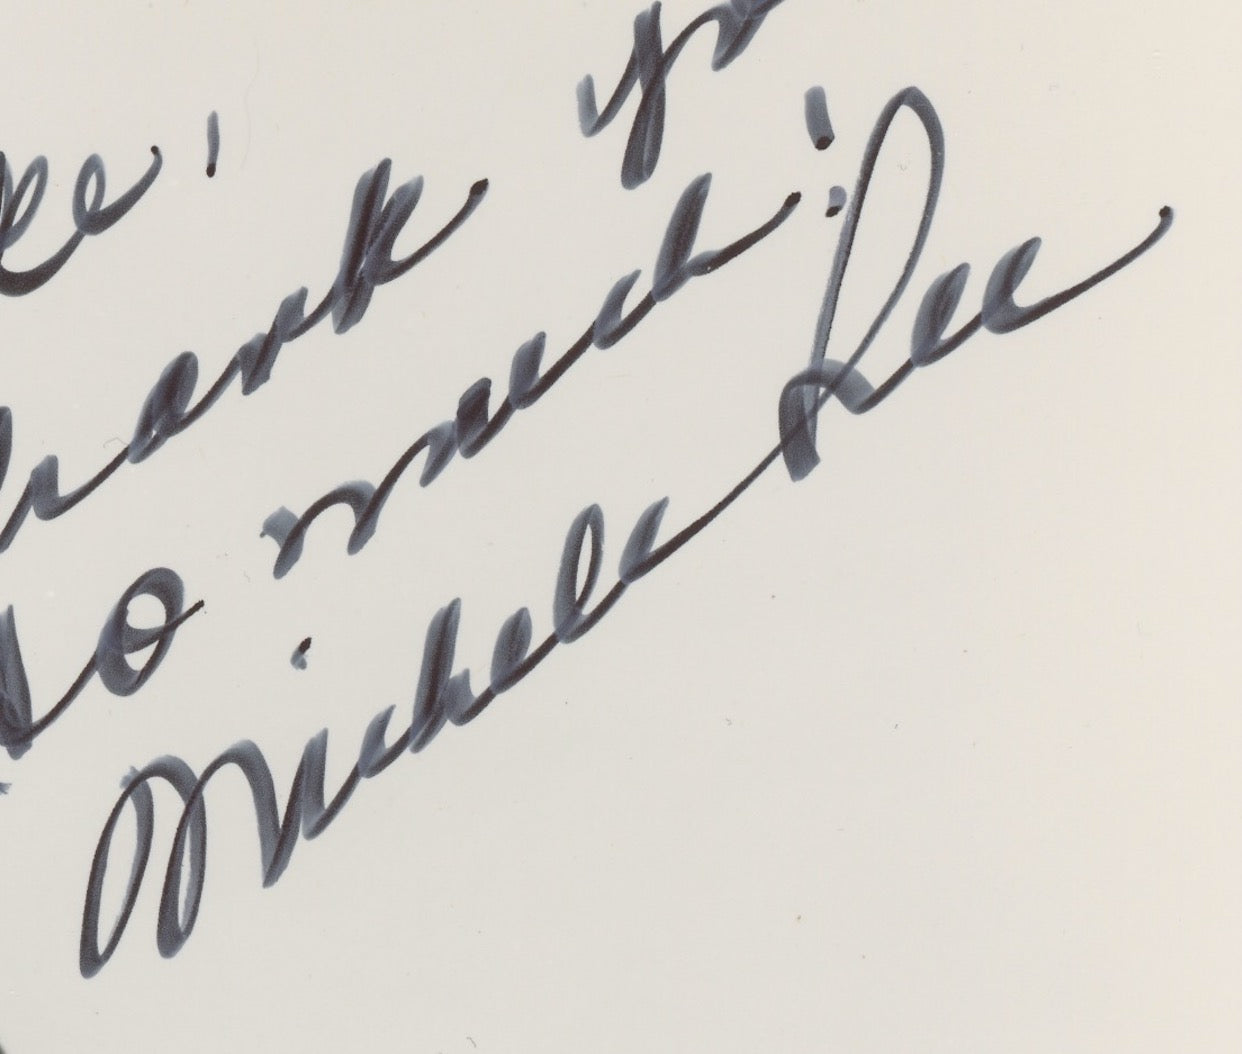 ee!
Thank yo
so much!
Michele Lee